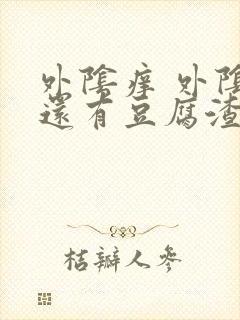 外陰痒 外陰
還有豆腐渣
桔瓣人參